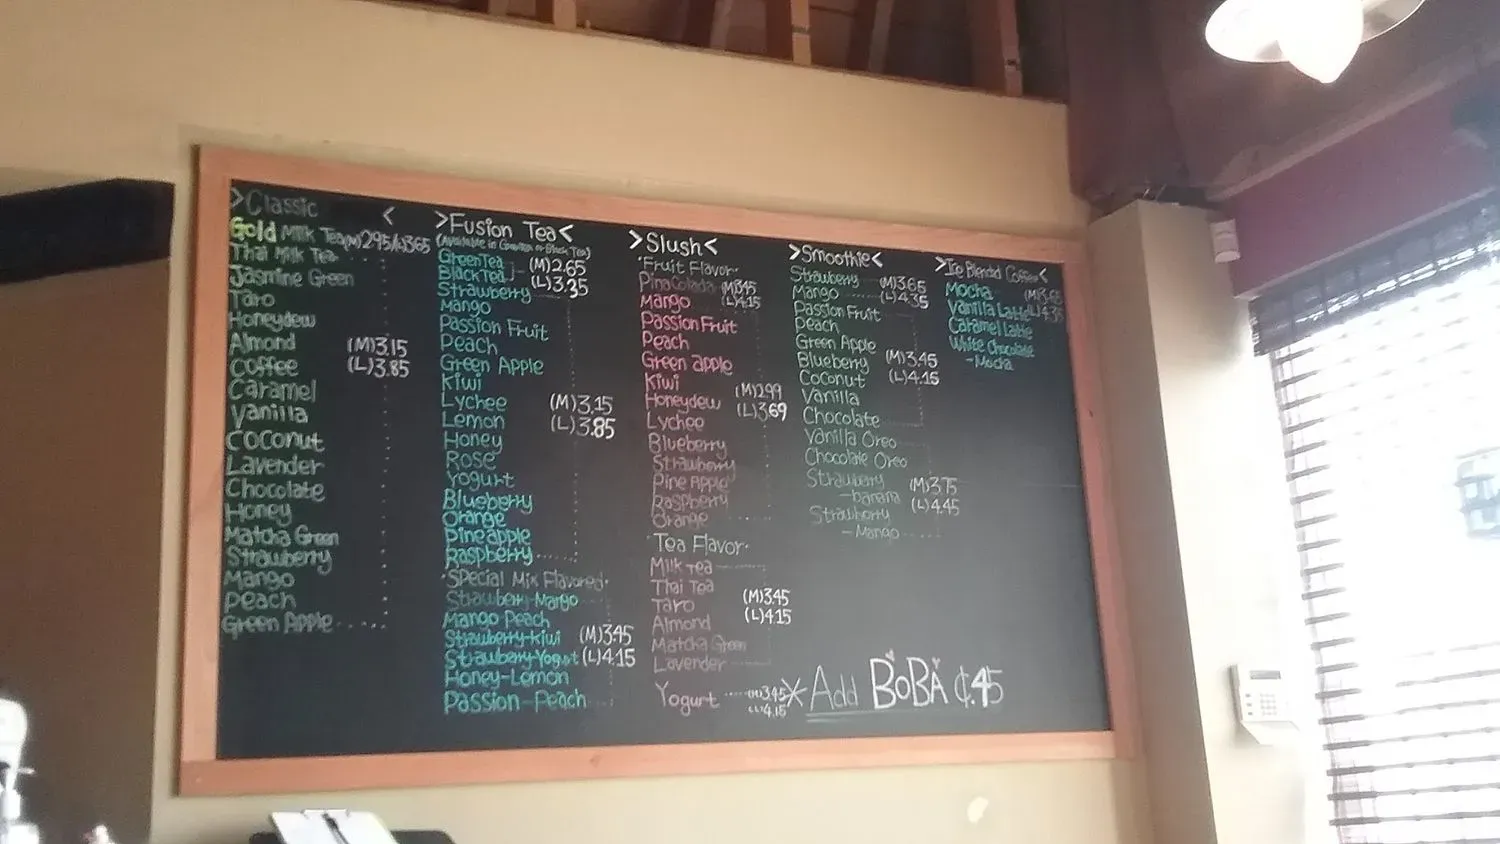 >Classic <
Gold Milk Tea(M)2.95/(L)3.65
Thai Milk Tea
Jasmine Green
Taro
Honeydew
Almond (M)3.15
Coffee (L)3.85
Caramel
Vanilla
Coconut
Lavender
Chocolate
Honey
Matcha Green
Strawberry
Mango
Peach
Green Apple
>Fusion Tea<
(Available in Green Tea or Black Tea)
Green Tea (M)2.65
Black Tea (L)3.35
Strawberry
Mango
Passion Fruit
Peach
Green Apple
Kiwi
Lychee (M)3.15
Lemon (L)3.85
Honey
Rose
Yogurt
Blueberry
Orange
Pineapple
Raspberry
·Special Mix Flavored·
Strawberry-Mango
Mango-Peach
Strawberry-Kiwi (M)3.45
Strawberry-Yogurt (L)4.15
Honey-Lemon
Passion-Peach
>Slush<
·Fruit Flavor·
Pina Colada (M)3.45
Mango (L)4.15
Passion Fruit
Peach
Green apple
Kiwi (M)2.99
Honeydew (L)3.69
Lychee
Blueberry
Strawberry
Pine Apple
Raspberry
Orange
·Tea Flavor·
Milk Tea
Thai Tea
Taro (M)3.45
Almond (L)4.15
Matcha Green
Lavender
Yogurt (M)3.45
(L)4.15
>Smoothie<
Strawberry (M)3.65
Mango (L)4.35
Passion Fruit
Peach
Green Apple
Blueberry (M)3.45
Coconut (L)4.15
Vanilla
Chocolate
Vanilla Oreo
Chocolate Oreo
Strawberry (M)3.75
-banana (L)4.45
Strawberry
-Mango
>Ice Blended Coffee<
Mocha (M)3.65
Vanilla Latte (L)4.35
Caramel Latte
White Chocolate
-Mocha
*Add BoBA ¢.45